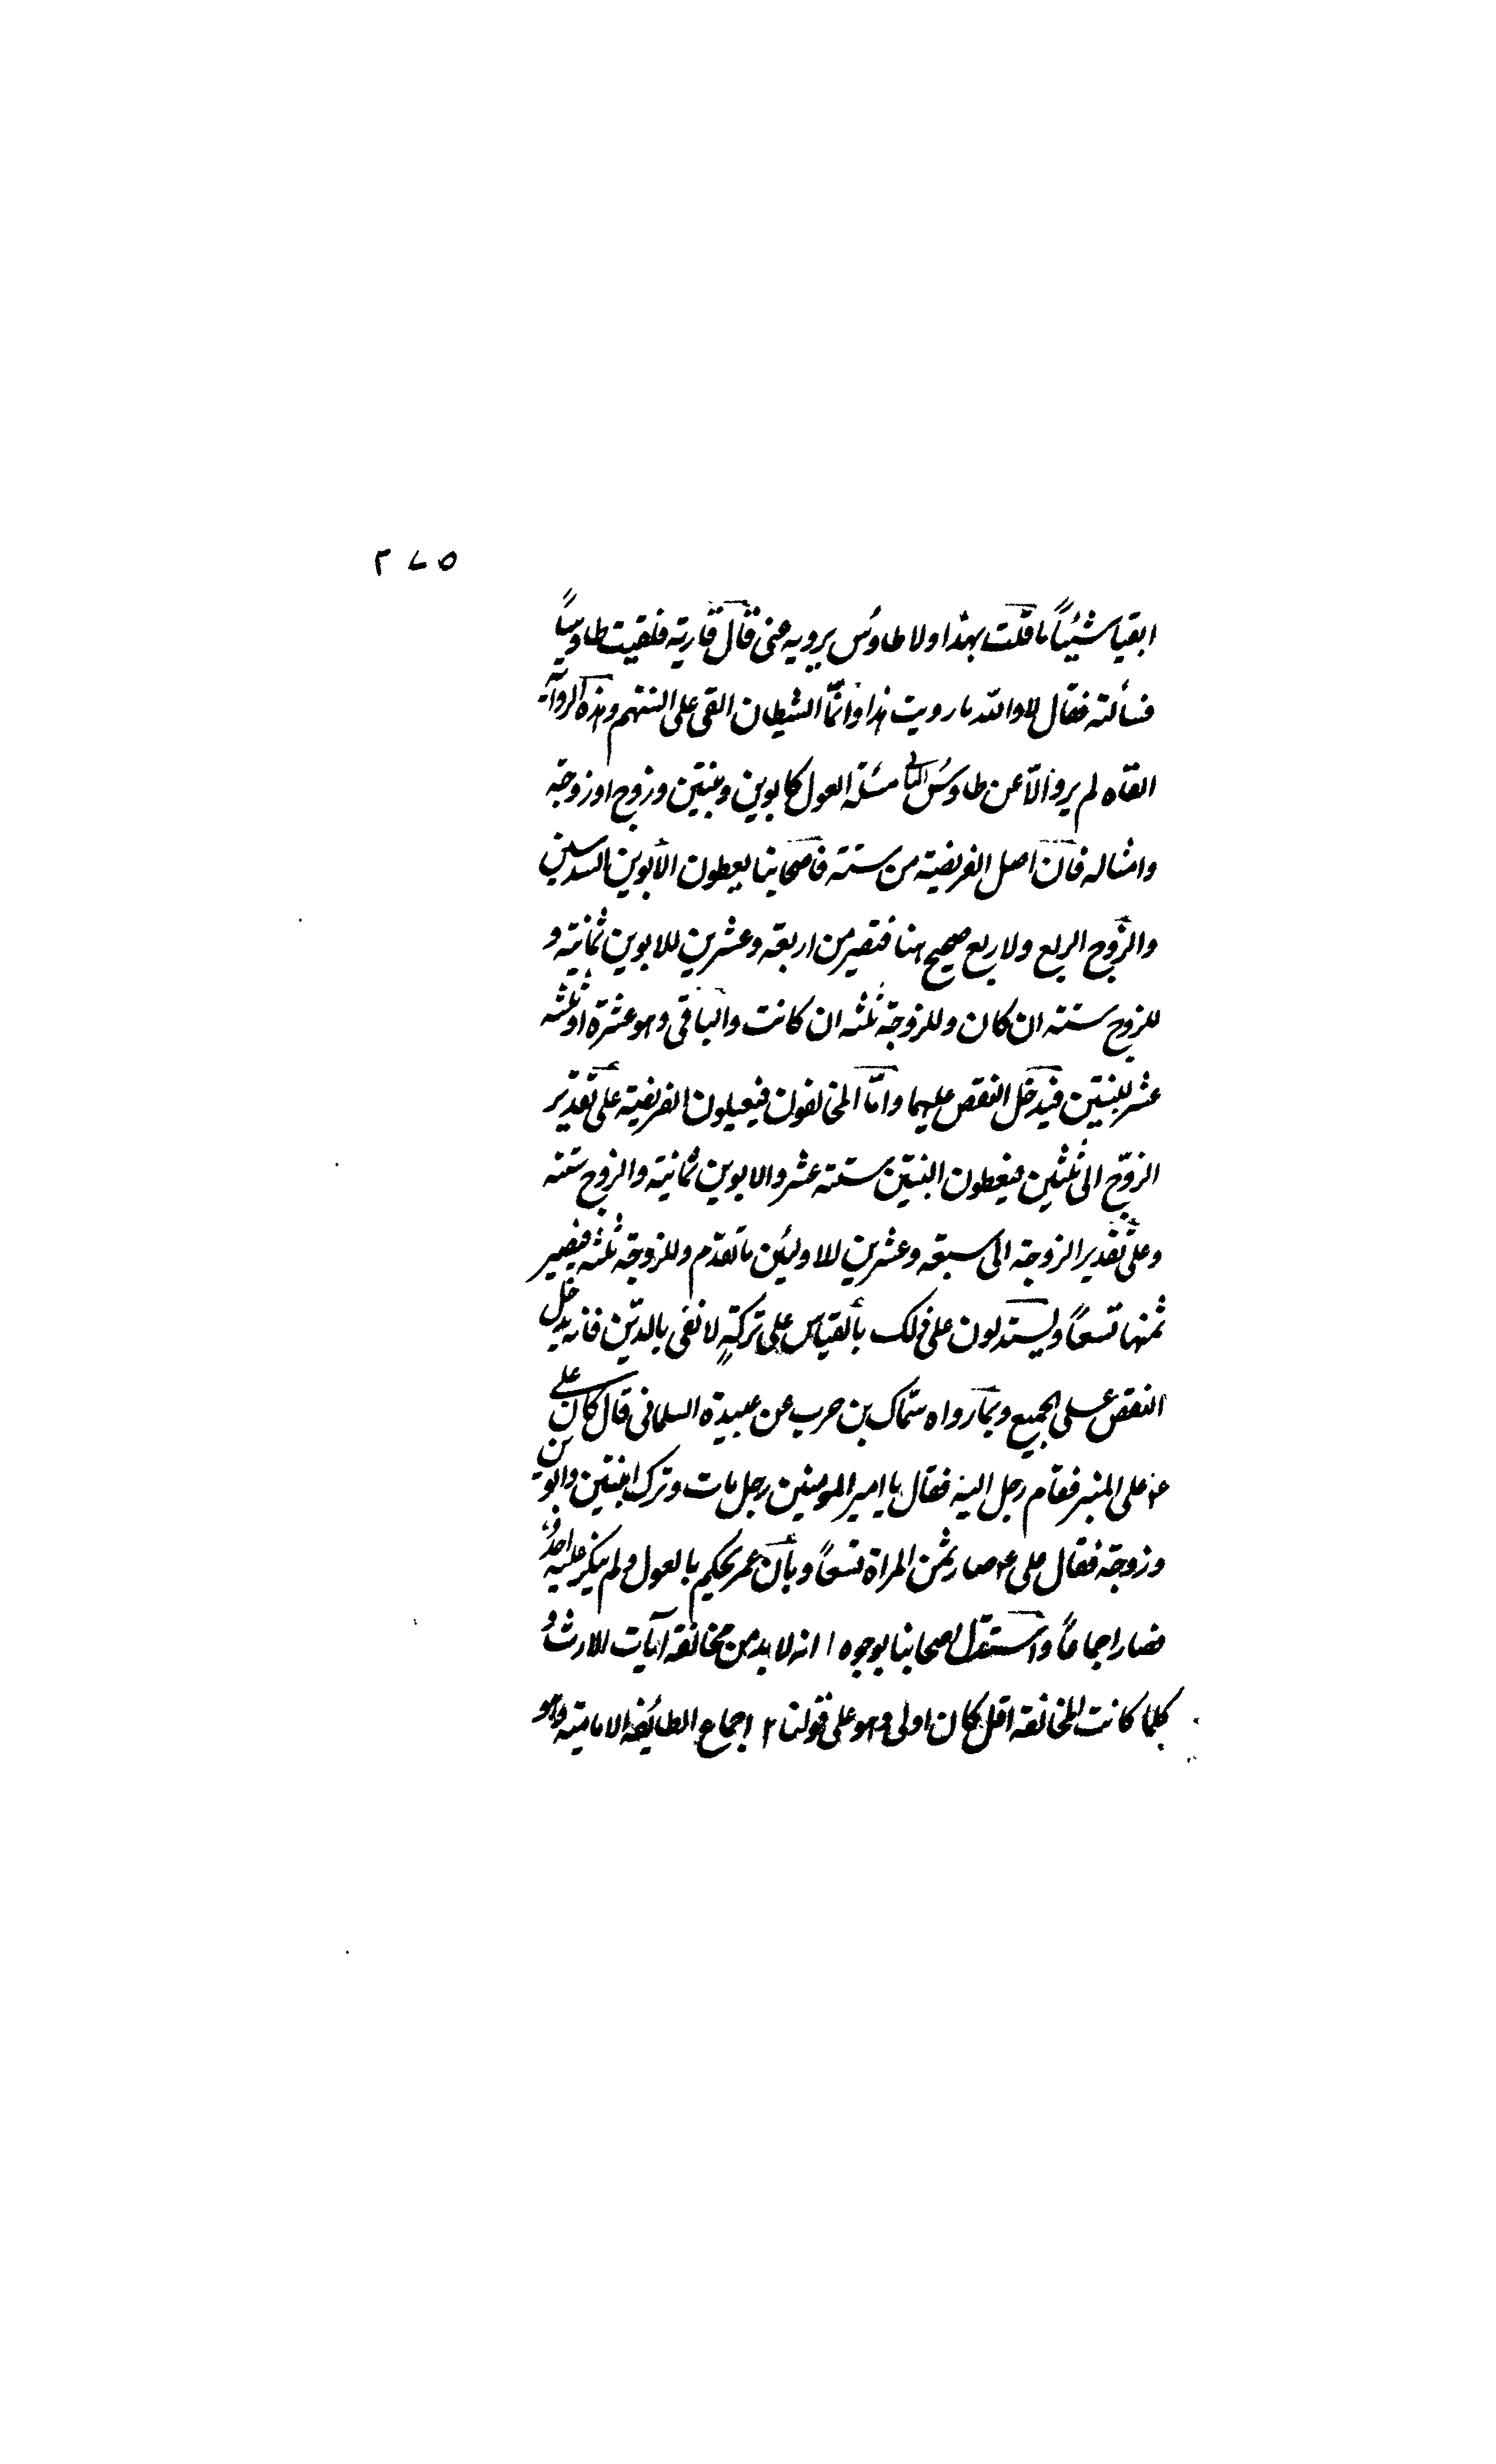 ٢٧٥
ابقيا شيئاً ما قلت بهذا ولا طاوس يرويه عنى قال قارية فلقيت طاوسياً
فسألته فقال لا والله ما رويت هذا وانّما الشيطان القى على السنتهم وهذه الرواية
القاه لم يرو الّا عن طاوس الثانى مسئلة العول كابوين وبنتين وزوج او زوجة
وامثاله فان اصل الفريضة من ستة فاصحابنا يعطون الأبوين السدسين
والزوج الربع ولا ربع صحيح هنا فتصير من اربعة وعشرين للابوين ثمانية و
للزوج ستة ان كان وللزوجة ثلثه ان كانت والباقى وهو عشرة او ثلثه
عشر للبنتين فيدخل النقص عليهما وامّا المخالفون فيعيلون الفريضة على تقدير
الزوج الى ثلثين فيعطون البنتين ستة عشر والابوين ثمانية والزوج ستة
وعلى تقدير الزوجة الى سبعة وعشرين للاولين ما تقدّم وللزوجة ثلثه فيصير
ثمنها تسعاً ويستدلون على ذلك بالقياس على تركةٍ لا تفى بالدّين فانه يدخل
النقص على الجميع وبما رواه سمّاك بن حرب عن عبيدة السلمانى قال كان على
ع على المنبر فقام رجل اليه فقال يا امير المومنين رجل مات وترك ابنتين وابوين
وزوجة فقال على ع صار ثمن المراة تسعاً وبأن عمر يحكم بالعول ولم ينكر عليه احدٌ
فصار اجماعاً واستدل اصحابنا بوجوه ١ انه لا بد من مخالفة آيات الارث و
كلما كانت المخالفة اقل كان اولى وهو على قولنا ٢ اجماع الطائفة الامامية وهو